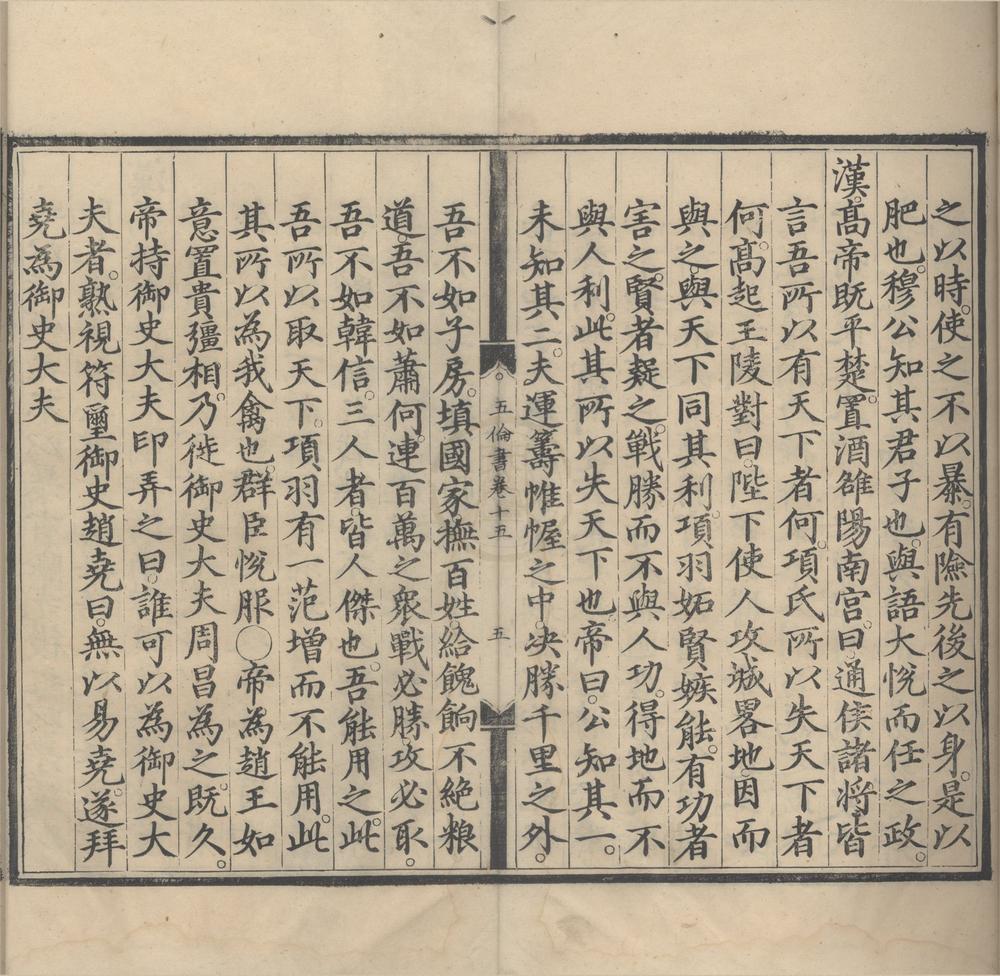 之以時使之不以暴有險先後之以身是以
肥也穆公知其君子也與語大悅而任之政
漢高帝既平楚置酒雒陽南宮曰通侯諸將皆
言吾所以有天下者何項氏所以失天下者
何高起王陵對曰陛下使人攻城畧地因而
與之與天下同其利項羽妬賢嫉能有功者
害之賢者疑之戰勝而不與人功得地而不
與人利此其所以失天下也帝曰公知其一
未知其二夫運籌帷幄之中决勝千里之外
五倫書卷十五
五
吾不如子房填國家撫百姓給餽餉不絶粮
道吾不如蕭何連百萬之衆戰必勝攻必取
吾不如韓信三人者皆人傑也吾能用之此
吾所以取天下項羽有一范增而不能用此
其所以為我禽也群臣悅服○帝為趙王如
意置貴彊相乃徙御史大夫周昌為之既久
帝持御史大夫印弄之曰誰可以為御史大
夫者熟視符璽御史趙堯曰無以易堯遂拜
堯為御史大夫